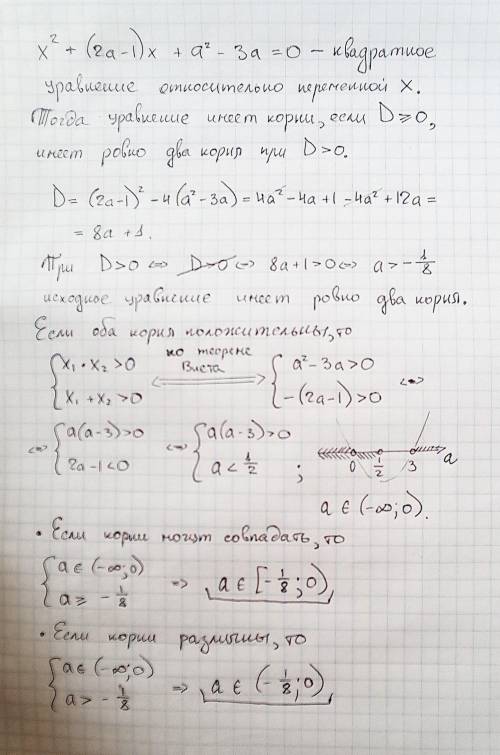 x² + (2a-1)x + a² - 3a = 0 – квадратное
уравнение относительно переменной x.
Тогда уравнение имеет корни, если D ≥ 0,
имеет ровно два корня при D > 0.
D = (2a-1)² - 4(a² - 3a) = 4a² - 4a + 1 - 4a² + 12a =
= 8a + 1.
При D > 0 ⇔ D > 0 ⇔ 8a + 1 > 0 ⇔ a > - 1/8
исходное уравнение имеет ровно два корня.
Если оба корня положительны, то
{ x₁ · x₂ > 0 ; x₁ + x₂ > 0 ⟺ по теореме Виета { a² - 3a > 0 ; -(2a-1) > 0 ⇔
⇔ { a(a-3) > 0 ; 2a - 1 < 0 ⇔ { a(a-3) > 0 ; a < 1/2 ; 0 1/2 3 a
a ∈ (-∞; 0).
• Если корни могут совпадать, то
{ a ∈ (-∞; 0) ; a ≥ - 1/8 ⇒ a ∈ [- 1/8; 0)
• Если корни различны, то
{ a ∈ (-∞; 0) ; a > - 1/8 ⇒ a ∈ (- 1/8; 0)